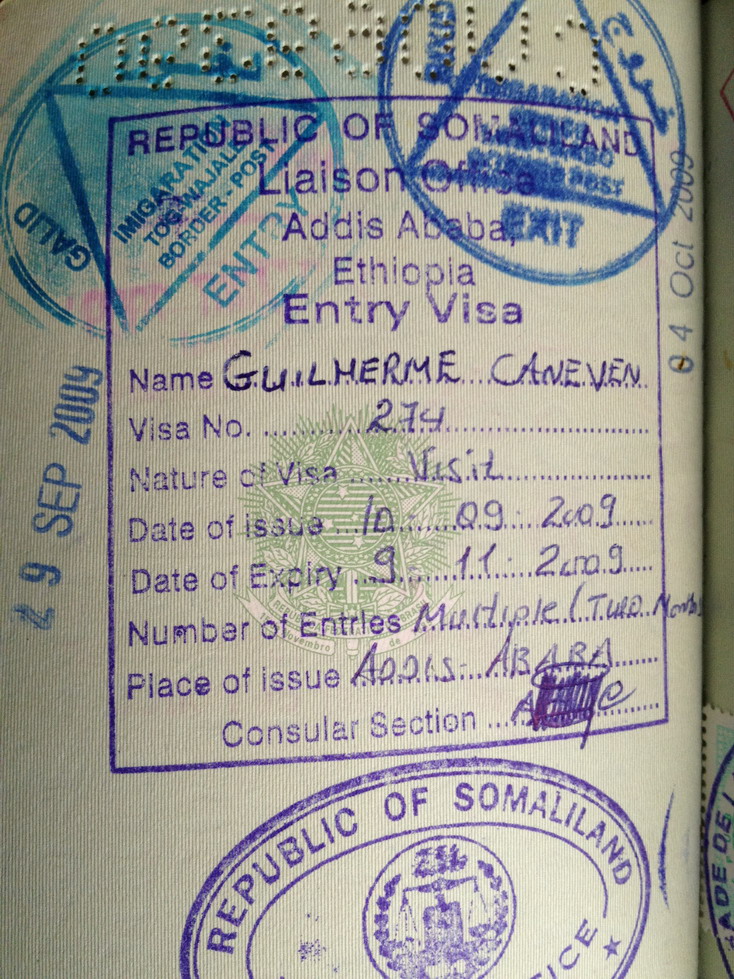 GALID
IMIGARATION
TOG-WAJALE
BORDER-POST
ENTRY
خروج
IMMIGARATION
POST
EXIT
29 SEP 2009
04 Oct 2009
REPUBLIC OF SOMALILAND
Liaison Office
Addis Ababa,
Ethiopia
Entry Visa
Name GUILHERME CANEVEN
Visa No. 274
Nature of Visa Visit
Date of issue 10-09-2009
Date of Expiry 9-11-2009
Number of Entries Multiple (Two Months
Place of issue ADDIS-ABABA
Consular Section
REPUBLIC OF SOMALILAND
ADE DE